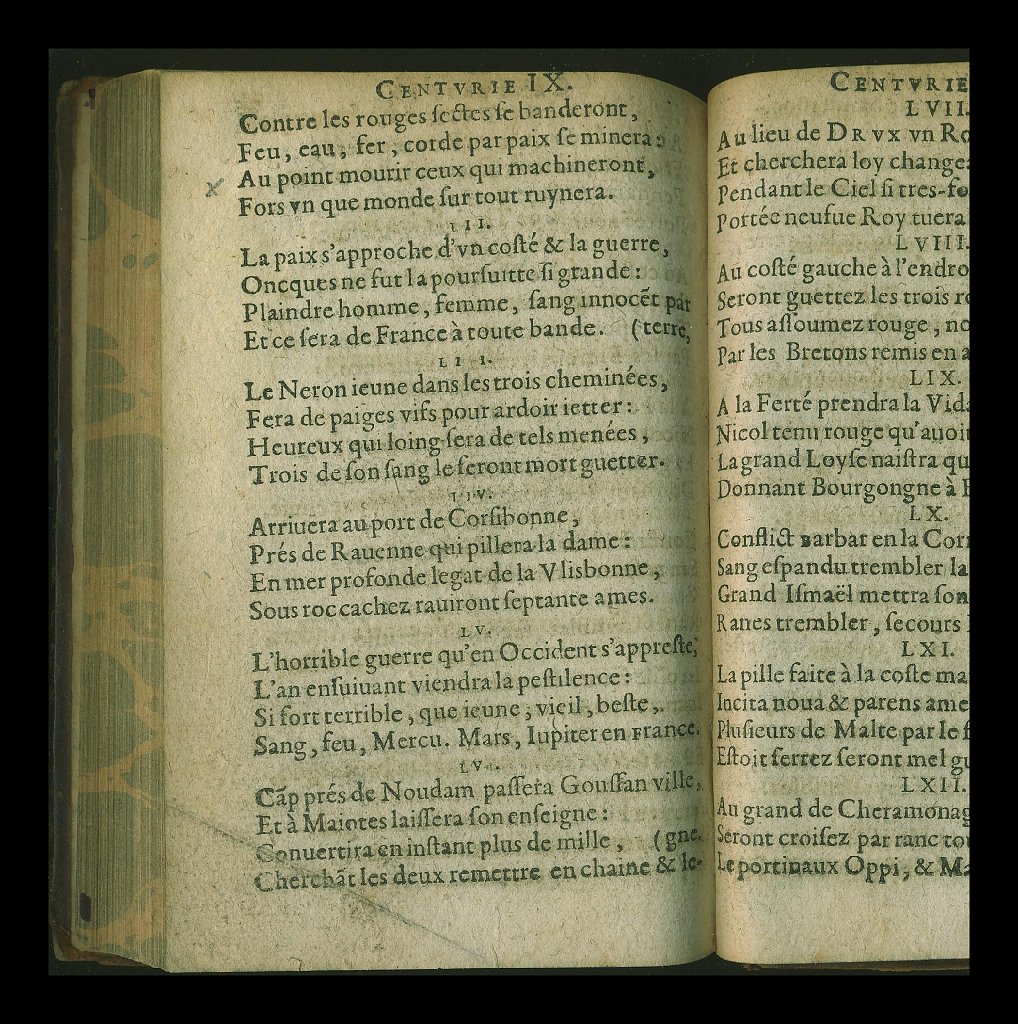 CENTVRIE IX.
Contre les rouges ſectes ſe banderont,
Feu, eau, fer, corde par paix ſe minera:
Au point mourir ceux qui machineront,
Fors vn que monde ſur tout ruynera.
LII.
La paix s'approche d'vn coſté & la guerre,
Oncques ne fut la pourſuitte ſi grande:
Plaindre homme, femme, ſang innocẽt par
Et ce ſera de France à toute bande. (terre,
LIII.
Le Neron ieune dans les trois cheminées,
Fera de paiges vifs pour ardoir ietter:
Heureux qui loing ſera de tels menées,
Trois de ſon ſang le ſeront mort guetter.
LIV.
Arriuera au port de Corſibonne,
Prés de Rauenne qui pillera la dame:
En mer profonde legat de la Vlisbonne,
Sous roc cachez rauiront ſeptante ames.
LV.
L'horrible guerre qu'en Occident s'appreſte,
L'an enſuiuant viendra la peſtilence:
Si fort terrible, que ieune, vieil, beſte,
Sang, feu, Mercu. Mars, Iupiter en France.
LVI.
Cãp prés de Noudam paſſera Gouſſan ville,
Et à Maiotes laiſſera ſon enſeigne:
Conuertira en inſtant plus de mille, (gne.
Cherchãt les deux remettre en chaine & le-
CENTVRIE
LVII.
Au lieu de DRVX vn Ro
Et cherchera loy change
Pendant le Ciel ſi tres-fo
Portée neufue Roy tuera
LVIII.
Au coſté gauche à l'endro
Seront guettez les trois ro
Tous aſſoumez rouge, no
Par les Bretons remis en a
LIX.
A la Ferté prendra la Vida
Nicol tenu rouge qu'auoit
La grand Loyſe naiſtra qu
Donnant Bourgongne à
LX.
Conflict barbat en la Cor
Sang eſpandu trembler la
Grand Iſmaël mettra ſon
Ranes trembler, ſecours
LXI.
La pille faite à la coſte ma
Incita noua & parens ame
Pluſieurs de Malte par le f
Eſtoit ferrez ſeront mel gu
LXII.
Au grand de Cheramonag
Seront croiſez par ranc tou
Le portinaux Oppi, & Ma